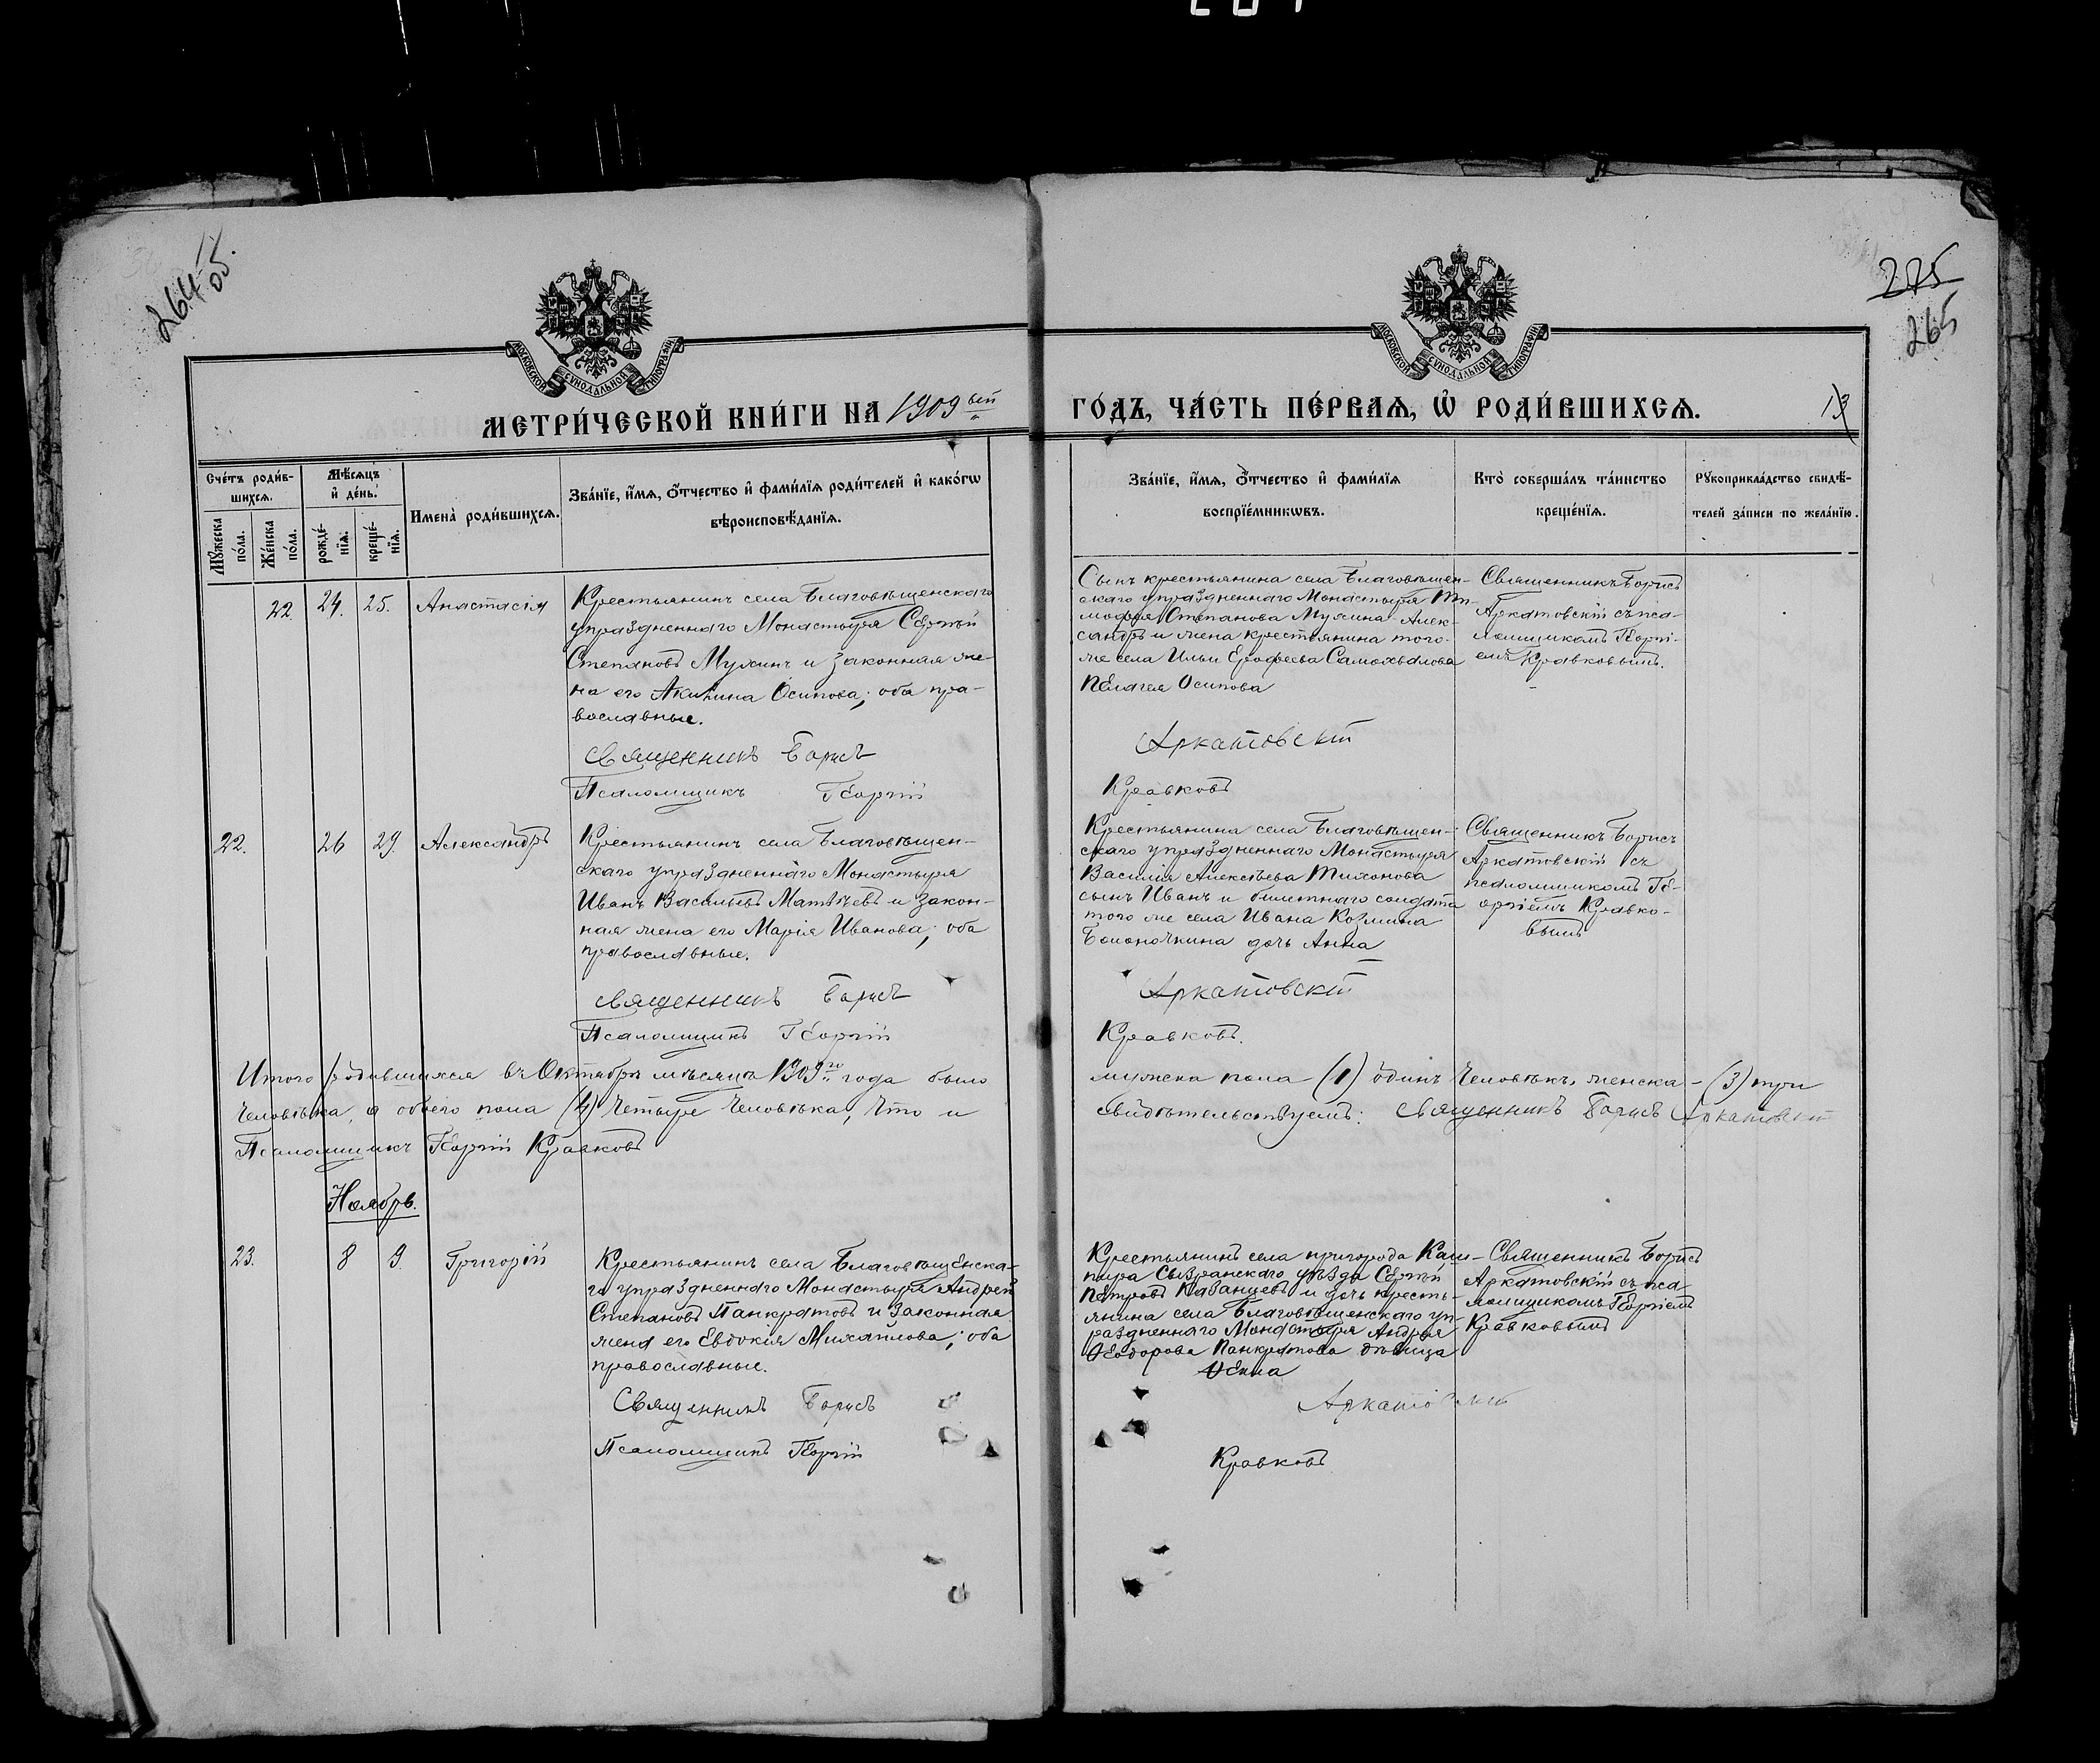 264 об.
225
265
МОСКОВСКОЙ СѴНОДАЛЬНОЙ ТИПОГРАФІИ
МОСКОВСКОЙ СѴНОДАЛЬНОЙ ТИПОГРАФІИ
МЕТРИ́ЧЕСКОЙ КНИ́ГИ НА 1909 ый
ГО́ДЪ, ЧА́СТЬ ПЕ́РВАѦ, Ѡ҆ РОДИ́ВШИХСѦ.
Сче́тъ роди́в-
шихсѧ.
Мѣ́сѧцъ
и҆ де́нь.
Мꙋ́жеска по́ла.
Же́нска по́ла.
рожде́-
нїѧ.
креще́-
нїѧ.
Имена̀ роди́вшихсѧ.
Зва́нїе, и҆́мѧ, ѻ҆́тчество и҆ фами́лїѧ роди́телей и҆ како́гѡ
вѣроисповѣ́данїѧ.
Зва́нїе, и҆́мѧ, ѻ҆́тчество и҆ фами́лїѧ
воспрїе́мникѡвъ.
Кто̀ соверша́лъ та́инство
креще́нїѧ.
Рꙋкоприкла́дство свидѣ́-
телей за́писи по жела́нїю.
22. 24. 25. Анастасія
Крестьянинъ села Благовѣщенскаго
упраздненнаго Монастыря Сергѣй
Степановъ Мухинъ и законная же-
на его Акилина Осипова; оба пра-
вославные.
Священникъ Борисъ
Псаломщикъ Георгій
Сынъ крестьянина села Благовѣщен-
скаго упраздненнаго Монастыря Ти-
мофея Степанова Мухина Алек-
сандръ и жена крестьянина того-
же села Ильи Ерофеева Самохвалова
Пелагея Осипова
Аркатовскій
Кравковъ
Священникъ Борисъ
Аркатовскій съ пса-
ломщикомъ Георгі-
емъ Кравковымъ.
22. 26 29 Александръ
Крестьянинъ села Благовѣщен-
скаго упраздненнаго Монастыря
Иванъ Васильевъ Матвѣевъ и закон-
ная жена его Марія Иванова; оба
православные.
Священникъ Борисъ
Псаломщикъ Георгій
Крестьянина села Благовѣщен-
скаго упраздненнаго Монастыря
Василія Алексѣева Тихонова
сынъ Иванъ и билетнаго солдата
того же села Ивана Козмина
дочь Анна
Аркатовскій
Кравковъ.
Священникъ Борисъ
Аркатовскій съ
псаломщикомъ Ге-
оргіемъ Кравко-
вымъ
Итого родившихся въ Октябрѣ мѣсяцѣ 1909го года было
мужска пола (1) одинъ человѣкъ, женска - (3) три
человѣка, а обоего пола (4) четыре человѣка, что и
свидѣтельствуемъ: Священникъ Борисъ Аркатовскій
Псаломщикъ Георгій Кравковъ
Ноябрь.
23. 8 9. Григорій
Крестьянинъ села Благовѣщенска-
го упраздненнаго Монастыря Андрей
Степановъ Панкратовъ и законная
жена его Евдокія Михайлова; оба
православные.
Священникъ Борисъ
Псаломщикъ Георгій
Крестьянинъ села пригорода Каш-
пира Сызранскаго уѣзда Сергѣй
Петровъ и дочь кресть-
янина села Благовѣщенскаго уп-
раздненнаго Монастыря Андрея
Ѳеодорова Панкратова дѣвица
Аркатовскій
Кравковъ
Священникъ Борисъ
Аркатовскій съ пса-
ломщикомъ Георгіемъ
Кравковымъ